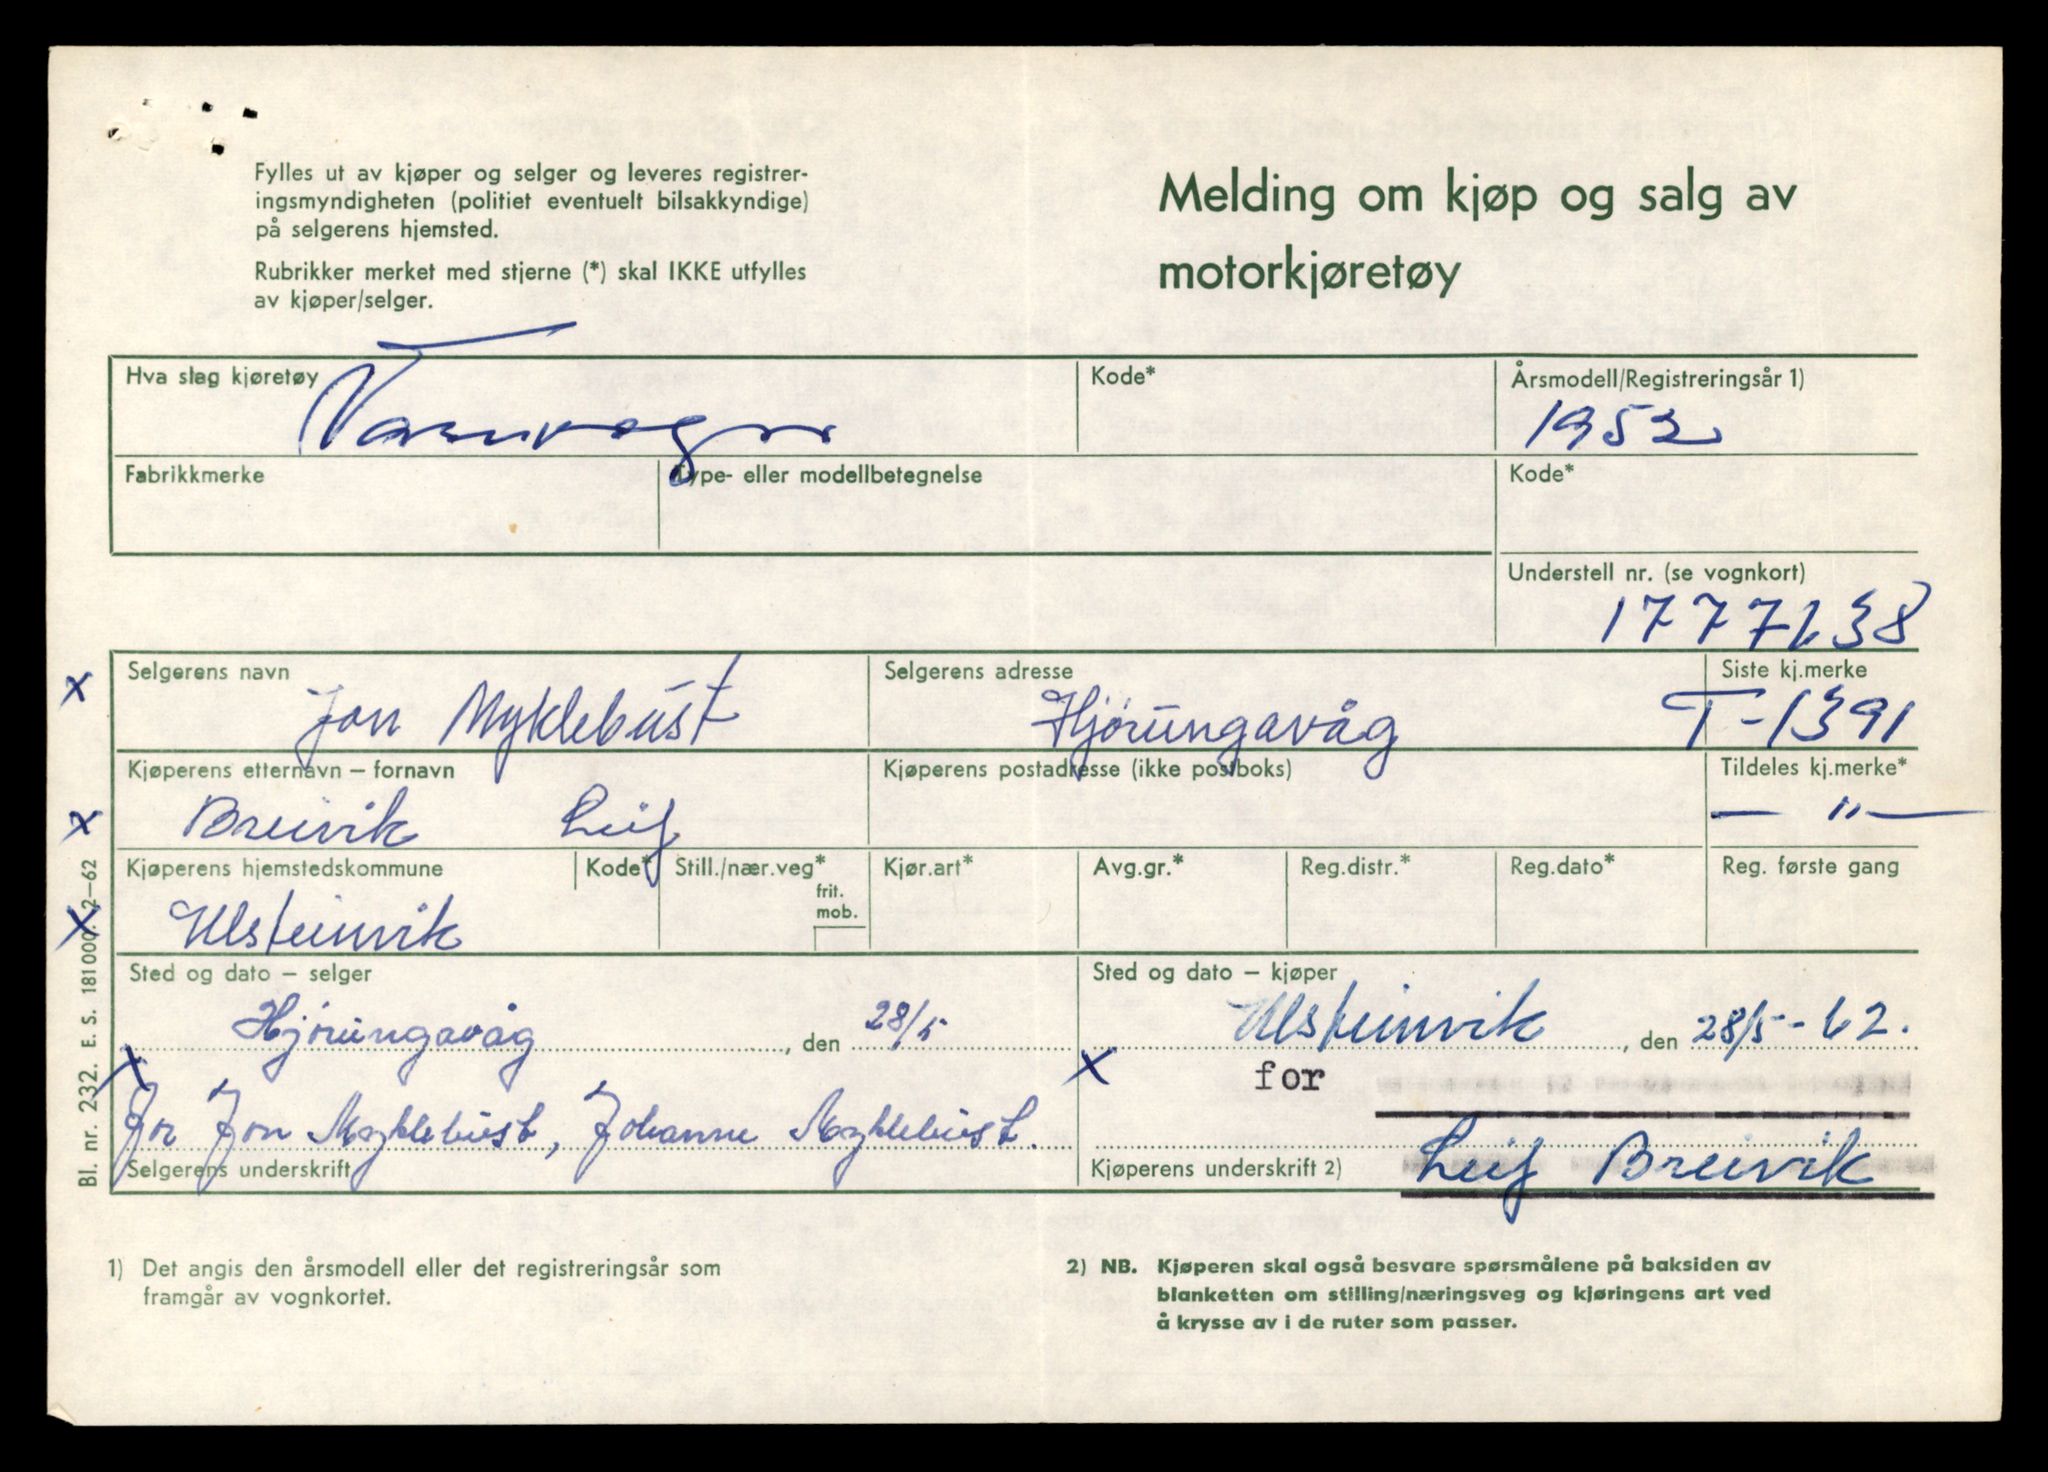 Fylles ut av kjøper og selger og leveres registrer-
ingsmyndigheten (politiet eventuelt bilsakkyndige)
på selgerens hjemsted.
Rubrikker merket med stjerne (*) skal IKKE utfylles
av kjøper/selger.
Melding om kjøp og salg av
motorkjøretøy
Hva slag kjøretøy
Varevogn
Kode*
Årsmodell/Registreringsår 1)
1952
Fabrikkmerke
Type- eller modellbetegnelse
Kode*
Understell nr. (se vognkort)
Selgerens navn
Jon Myklebust
Selgerens adresse
Hjørungavåg
Siste kj.merke
T-1391
Kjøperens etternavn – fornavn
Breivik Leif
Kjøperens postadresse (ikke postboks)
Tildeles kj.merke*
— " —
Kjøperens hjemstedskommune
Ulsteinvik
Kode*
Still./nær.veg*
frit.
mob.
Kjør.art*
Avg.gr.*
Reg.distr.*
Reg.dato*
Reg. første gang
Sted og dato – selger
Hjørungavåg, den 28/5
Sted og dato – kjøper
Ulsteinvik, den 28/5-62.
for
for Jon Myklebust, Johanne Myklebust.
Selgerens underskrift
Kjøperens underskrift 2)
Leif Breivik
Bl. nr. 232. E. s. 181 000. 2–62
1) Det angis den årsmodell eller det registreringsår som
framgår av vognkortet.
2) NB. Kjøperen skal også besvare spørsmålene på baksiden av
blanketten om stilling/næringsveg og kjøringens art ved
å krysse av i de ruter som passer.